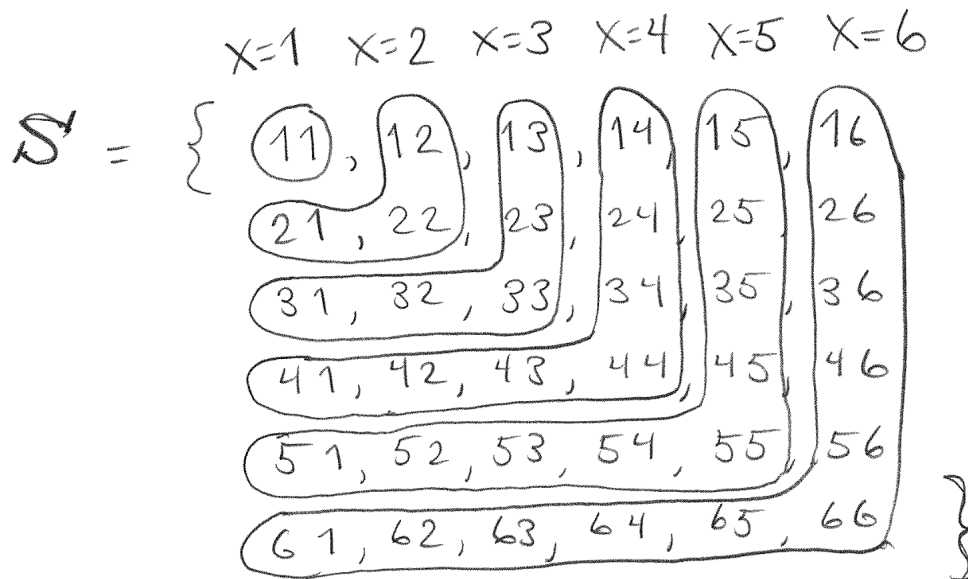 X=1 X=2 X=3 X=4 X=5 X=6
S = { 11, 12, 13, 14, 15, 16
21, 22, 23, 24, 25, 26
31, 32, 33, 34, 35, 36
41, 42, 43, 44, 45, 46
51, 52, 53, 54, 55, 56
61, 62, 63, 64, 65, 66 }